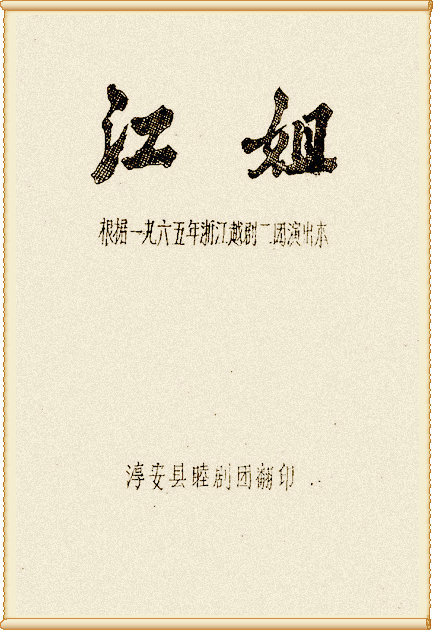 江姐
根据一九六五年浙江越剧二团演出本
淳安县睦剧团翻印